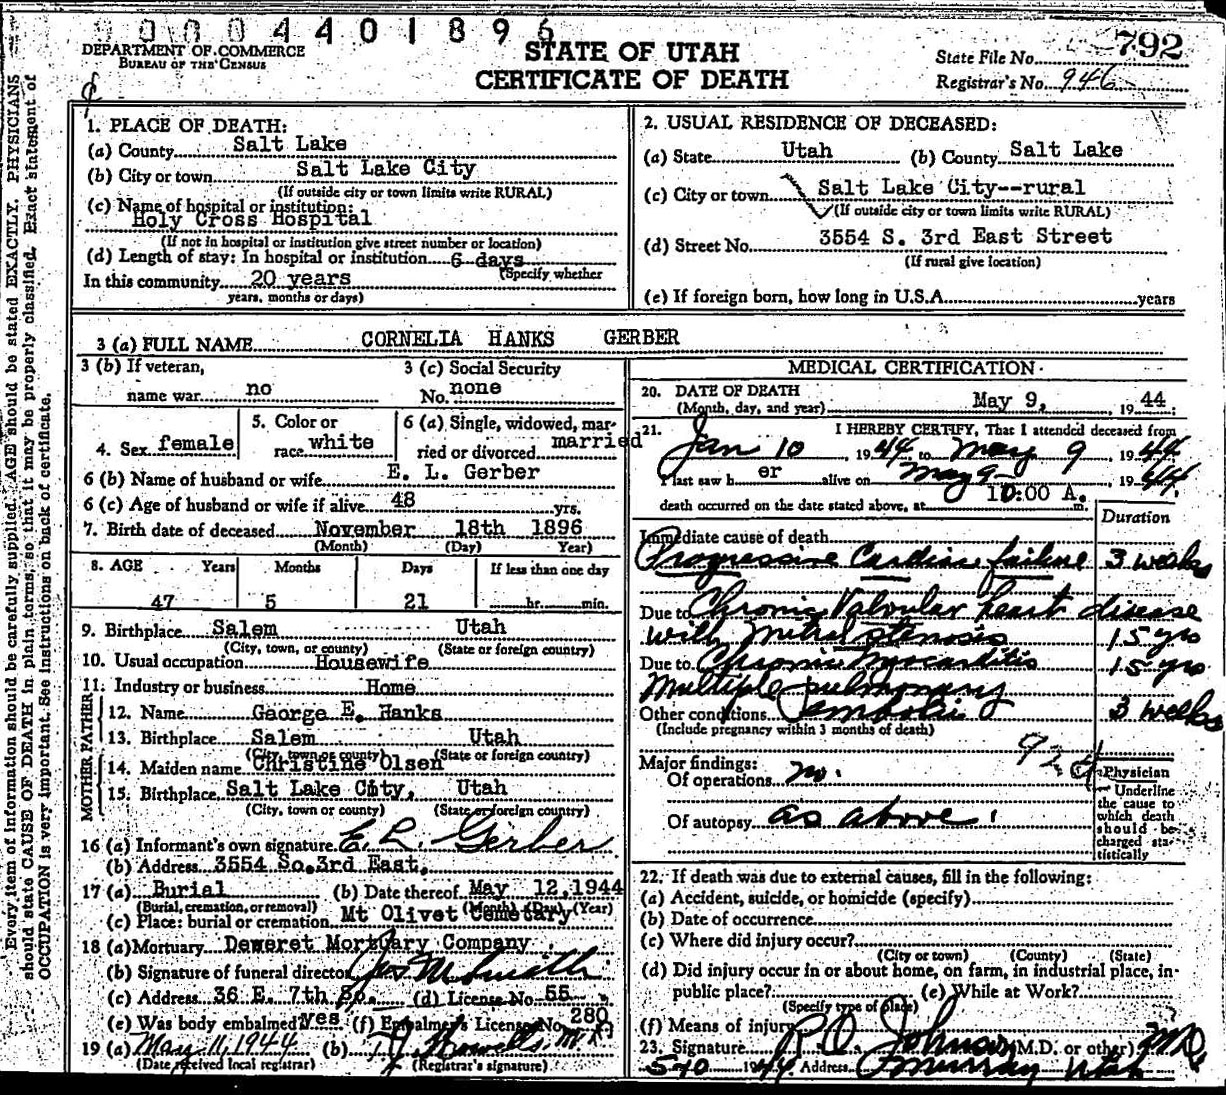 0 0 0 4 4 0 1 8 9 6
DEPARTMENT OF COMMERCE
BUREAU OF THE CENSUS
STATE OF UTAH
CERTIFICATE OF DEATH
792
State File No.
Registrar's No. 946
Every item of information should be carefully supplied. AGE should be stated EXACTLY. PHYSICIANS
should state CAUSE OF DEATH in plain terms, so that it may be properly classified. Exact statement of
OCCUPATION is very important. See instructions on back of certificate.
1. PLACE OF DEATH:
(a) County Salt Lake
(b) City or town Salt Lake City
(If outside city or town limits write RURAL)
(c) Name of hospital or institution:
Holy Cross Hospital
(If not in hospital or institution give street number or location)
(d) Length of stay: In hospital or institution 6 days
(Specify whether
In this community 20 years
years, months or days)
2. USUAL RESIDENCE OF DECEASED:
(a) State Utah (b) County Salt Lake
(c) City or town Salt Lake City--rural
(If outside city or town limits write RURAL)
(d) Street No. 3554 S. 3rd East Street
(If rural give location)
(e) If foreign born, how long in U.S.A. years
3 (a) FULL NAME CORNELIA HANKS GERBER
3 (b) If veteran,
name war no
3 (c) Social Security
No. none
4. Sex female
5. Color or
race white
6 (a) Single, widowed, mar-
ried or divorced married
6 (b) Name of husband or wife E. L. Gerber
6 (c) Age of husband or wife if alive 48 yrs.
7. Birth date of deceased November 18th 1896
(Month) (Day) Year)
8. AGE Years Months Days If less than one day
47 5 21 hr. min.
9. Birthplace Salem Utah
(City, town, or county) (State or foreign country)
10. Usual occupation Housewife
11. Industry or business Home
FATHER
12. Name George E. Hanks
13. Birthplace Salem Utah
(City, town or county) (State or foreign country)
MOTHER
14. Maiden name Christine Olsen
15. Birthplace Salt Lake City, Utah
(City, town or county) (State or foreign country)
16 (a) Informant's own signature E. L. Gerber
(b) Address 3554 So. 3rd East.
17 (a) Burial (b) Date thereof May 12, 1944
(Burial, cremation, or removal) (Month) (Day) (Year)
(c) Place: burial or cremation Mt Olivet Cemetary
18 (a) Mortuary Deweret Mortuary Company
(b) Signature of funeral director
(c) Address 36 E. 7th So. (d) License No. 55
(e) Was body embalmed? yes (f) Embalmer's License No. 280
19 (a) May 11, 1944 (b)
(Date received local registrar) (Registrar's signature)
MEDICAL CERTIFICATION
20. DATE OF DEATH
(Month, day, and year) May 9, 1944
21. I HEREBY CERTIFY, That I attended deceased from
Jan 10, 1944 to May 9, 1944
I last saw h er alive on May 9 1944
death occurred on the date stated above, at 10:00 A. m.
Duration
Immediate cause of death
Progressive Cardiac failure 3 weeks
Due to Chronic Valvular heart disease
with mitral stenosis 15 yrs
Due to Chronic myocarditis 15 yrs
Multiple pulmonary
Other conditions emboli 3 weeks
(Include pregnancy within 3 months of death)
92
Major findings:
Of operations no.
Of autopsy as above.
Physician
Underline
the cause to
which death
should be
charged sta-
tistically
22. If death was due to external causes, fill in the following:
(a) Accident, suicide, or homicide (specify)
(b) Date of occurrence
(c) Where did injury occur?
(City or town) (County) (State)
(d) Did injury occur in or about home, on farm, in industrial place, in
public place? (e) While at Work?
(Specify type of place)
(f) Means of injury
23. Signature R. O. Johnson (M.D. or other) M.D.
5-10 1944 Address Murray Utah